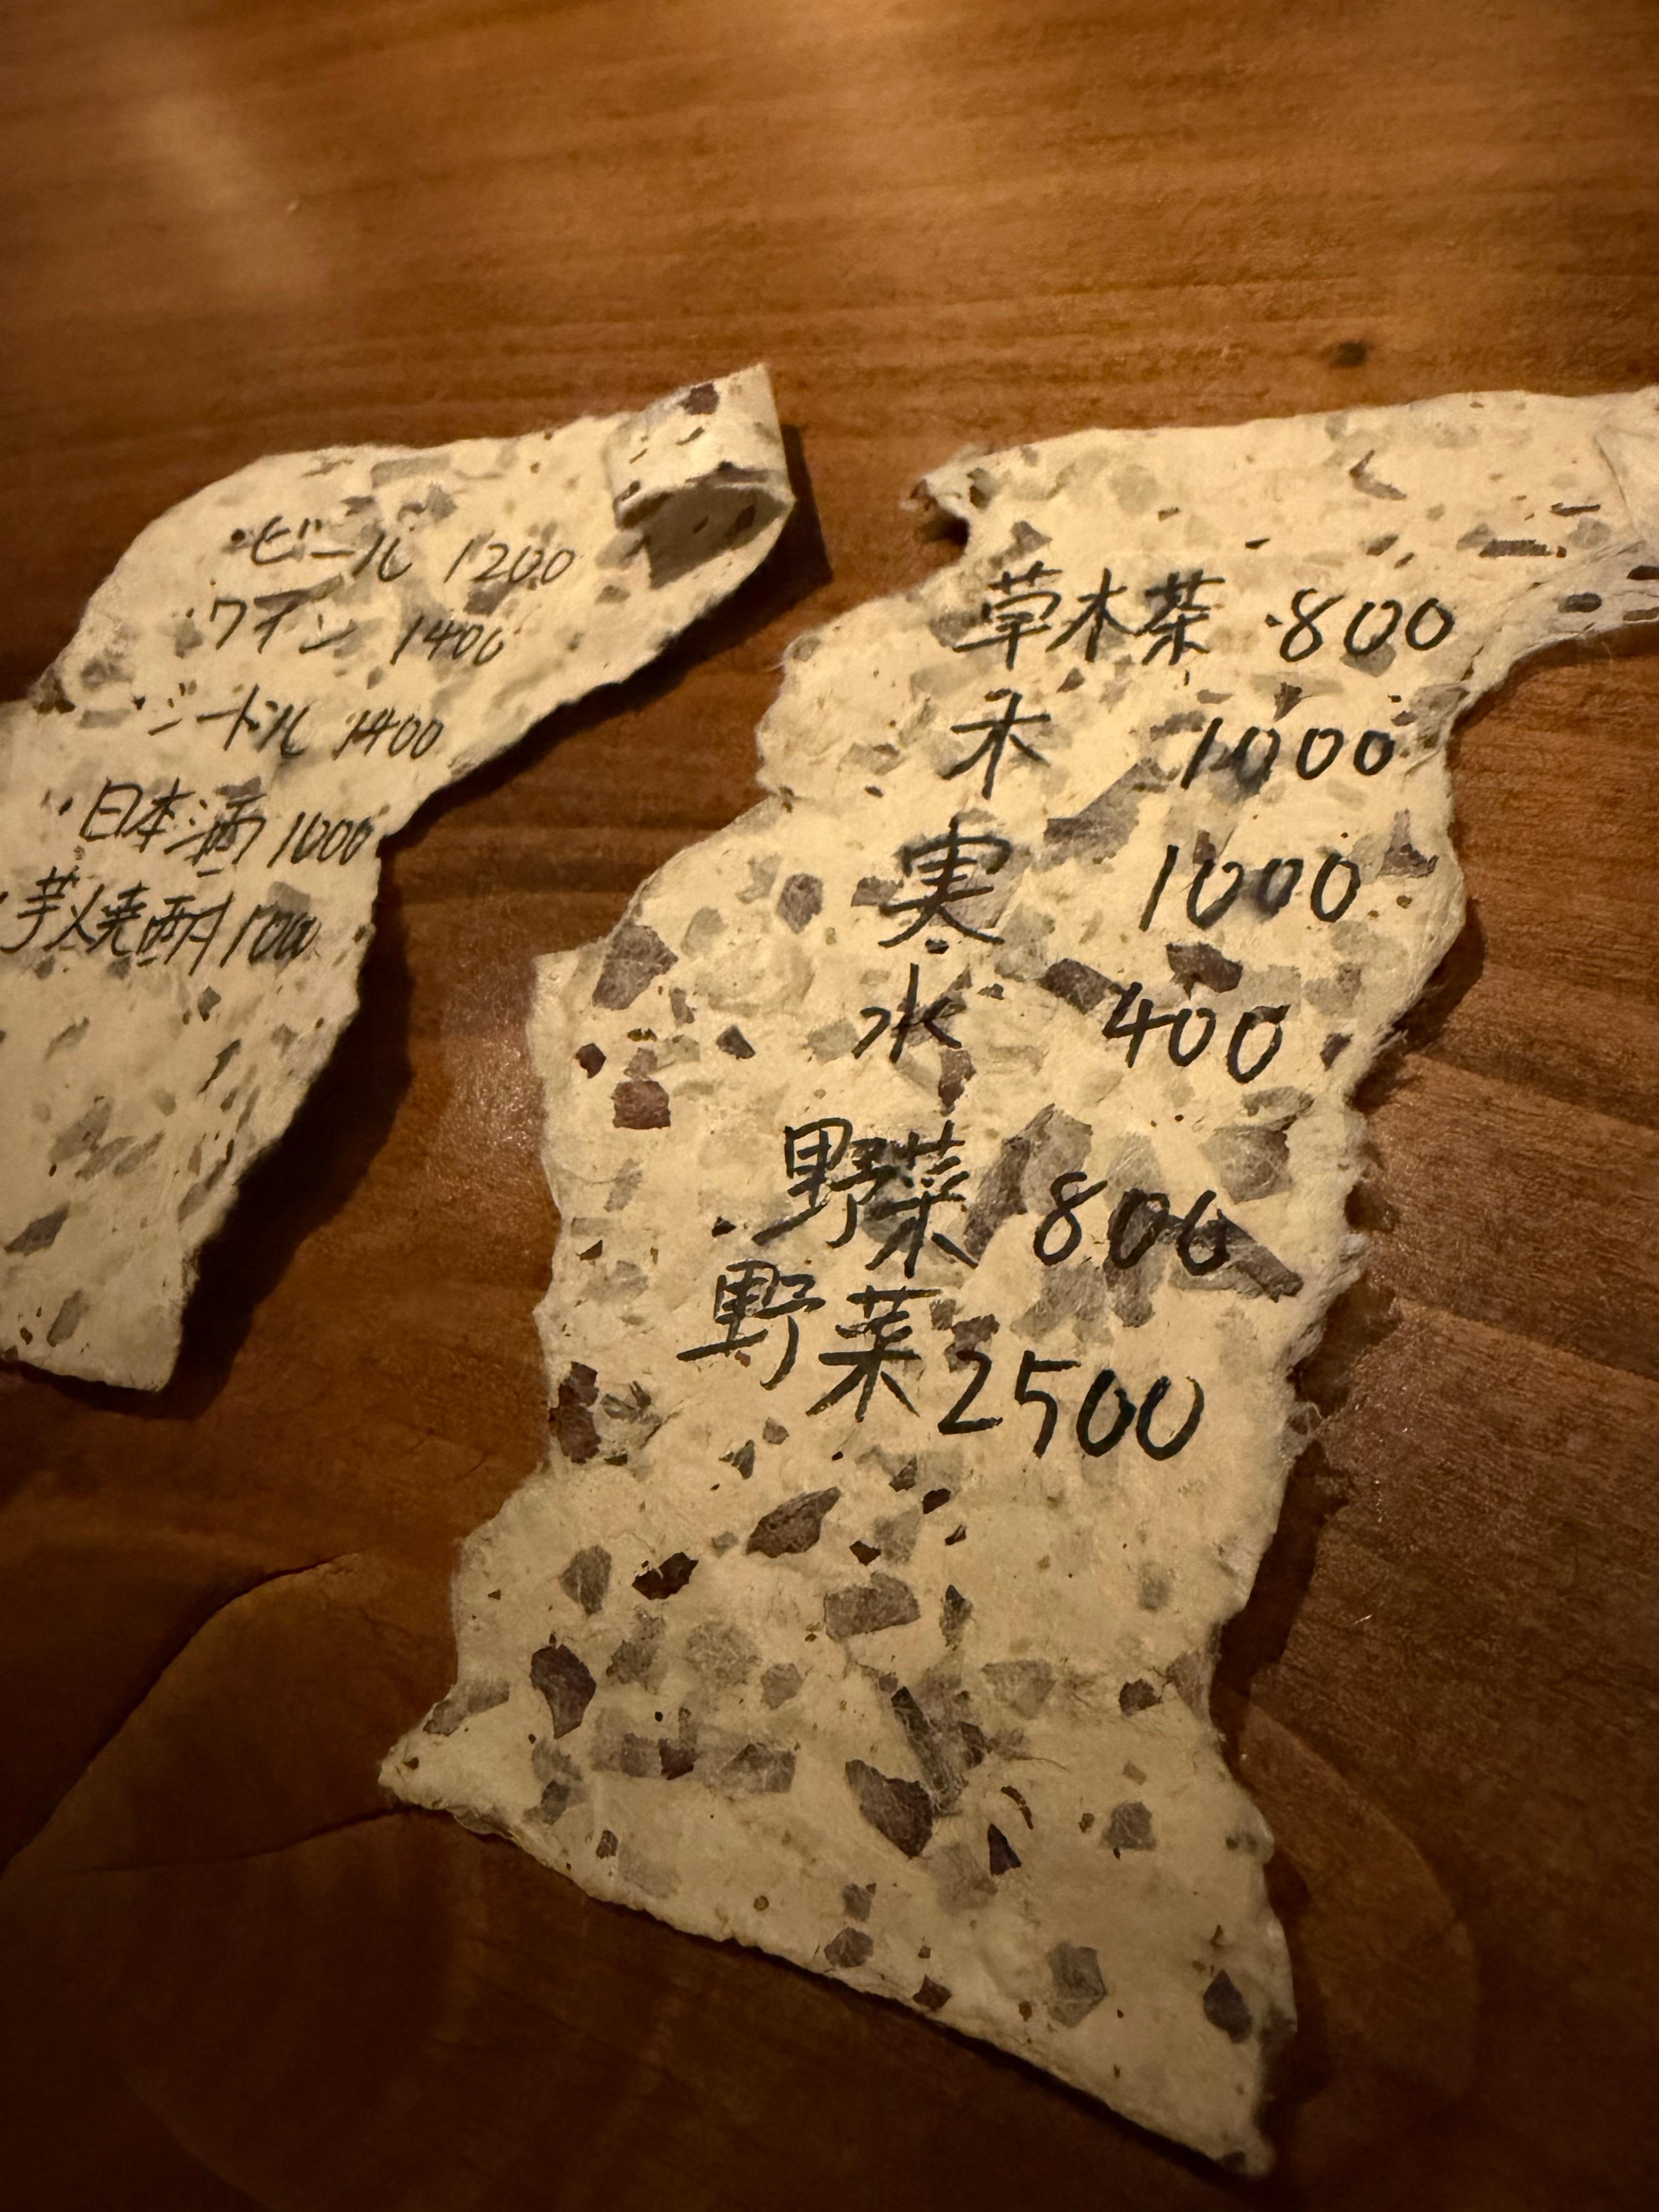 ・ビール 1200
・ワイン 1400
・シードル 1400
・日本酒 1000
・芋焼酎 1000
草木茶 800
木 1000
実 1000
水 400
野菜 800
野菜 2500